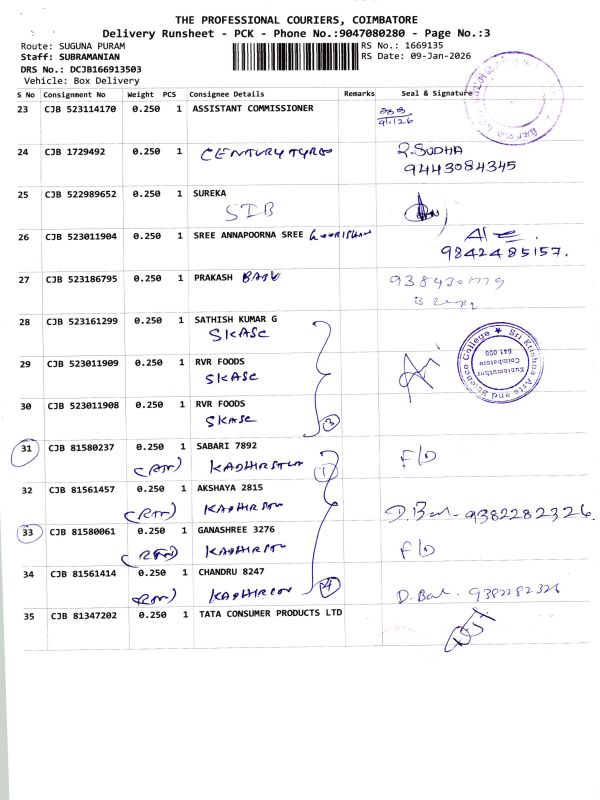 THE PROFESSIONAL COURIERS, COIMBATORE
Delivery Runsheet - PCK - Phone No.:9047080280 - Page No.:3
Route: SUGUNA PURAM RS No.: 1669135
Staff: SUBRAMANIAN RS Date: 09-Jan-2026
DRS No.: DCJB166913503
Vehicle: Box Delivery
S No Consignment No Weight PCS Consignee Details Remarks Seal & Signature
23 CJB 523114170 0.250 1 ASSISTANT COMMISSIONER
9/1/26
24 CJB 1729492 0.250 1 CENTURY TYRE R. SUDHA
9443084345
25 CJB 522989652 0.250 1 SUREKA
SIB
26 CJB 523011904 0.250 1 SREE ANNAPOORNA SREE
9842485157.
27 CJB 523186795 0.250 1 PRAKASH 9384301779
28 CJB 523161299 0.250 1 SATHISH KUMAR G
SKASC
Sri Krishna Arts and Science College ★
Kuniamuthur
Coimbatore
641 008
29 CJB 523011909 0.250 1 RVR FOODS
SKASC
30 CJB 523011908 0.250 1 RVR FOODS
SKASC
3
31 CJB 81580237 0.250 1 SABARI 7892 F/D
(RTN) 1
32 CJB 81561457 0.250 1 AKSHAYA 2815
(RTN) D. Bal - 9382282326.
33 CJB 81580061 0.250 1 GANASHREE 3276 F/D
(RTN)
34 CJB 81561414 0.250 1 CHANDRU 8247
(RTN) 4 D. Bal - 9382282326
35 CJB 81347202 0.250 1 TATA CONSUMER PRODUCTS LTD